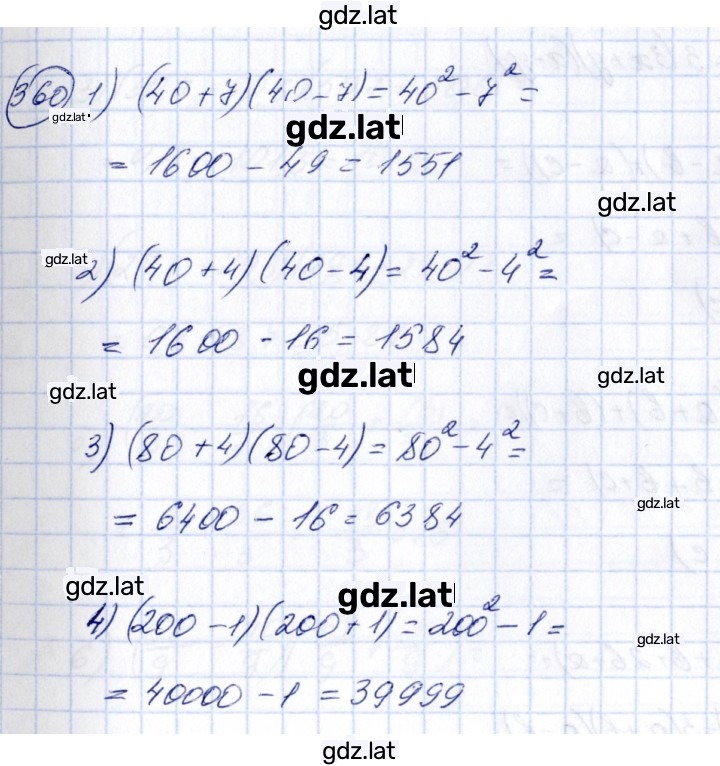 gdz.lat
360 1) (40+7)(40-7)=40²-7²=
gdz.lat
gdz.lat
= 1600 - 49 = 1551
gdz.lat
gdz.lat
2) (40+4)(40-4)= 40²-4²=
= 1600 - 16 = 1584
gdz.lat
gdz.lat
gdz.lat
3) (80+4)(80-4)=80²-4²=
= 6400 - 16 = 6384
gdz.lat
gdz.lat
gdz.lat
4) (200-1)(200+1)=200²-1=
gdz.lat
= 40000 - 1 = 39999
gdz.lat